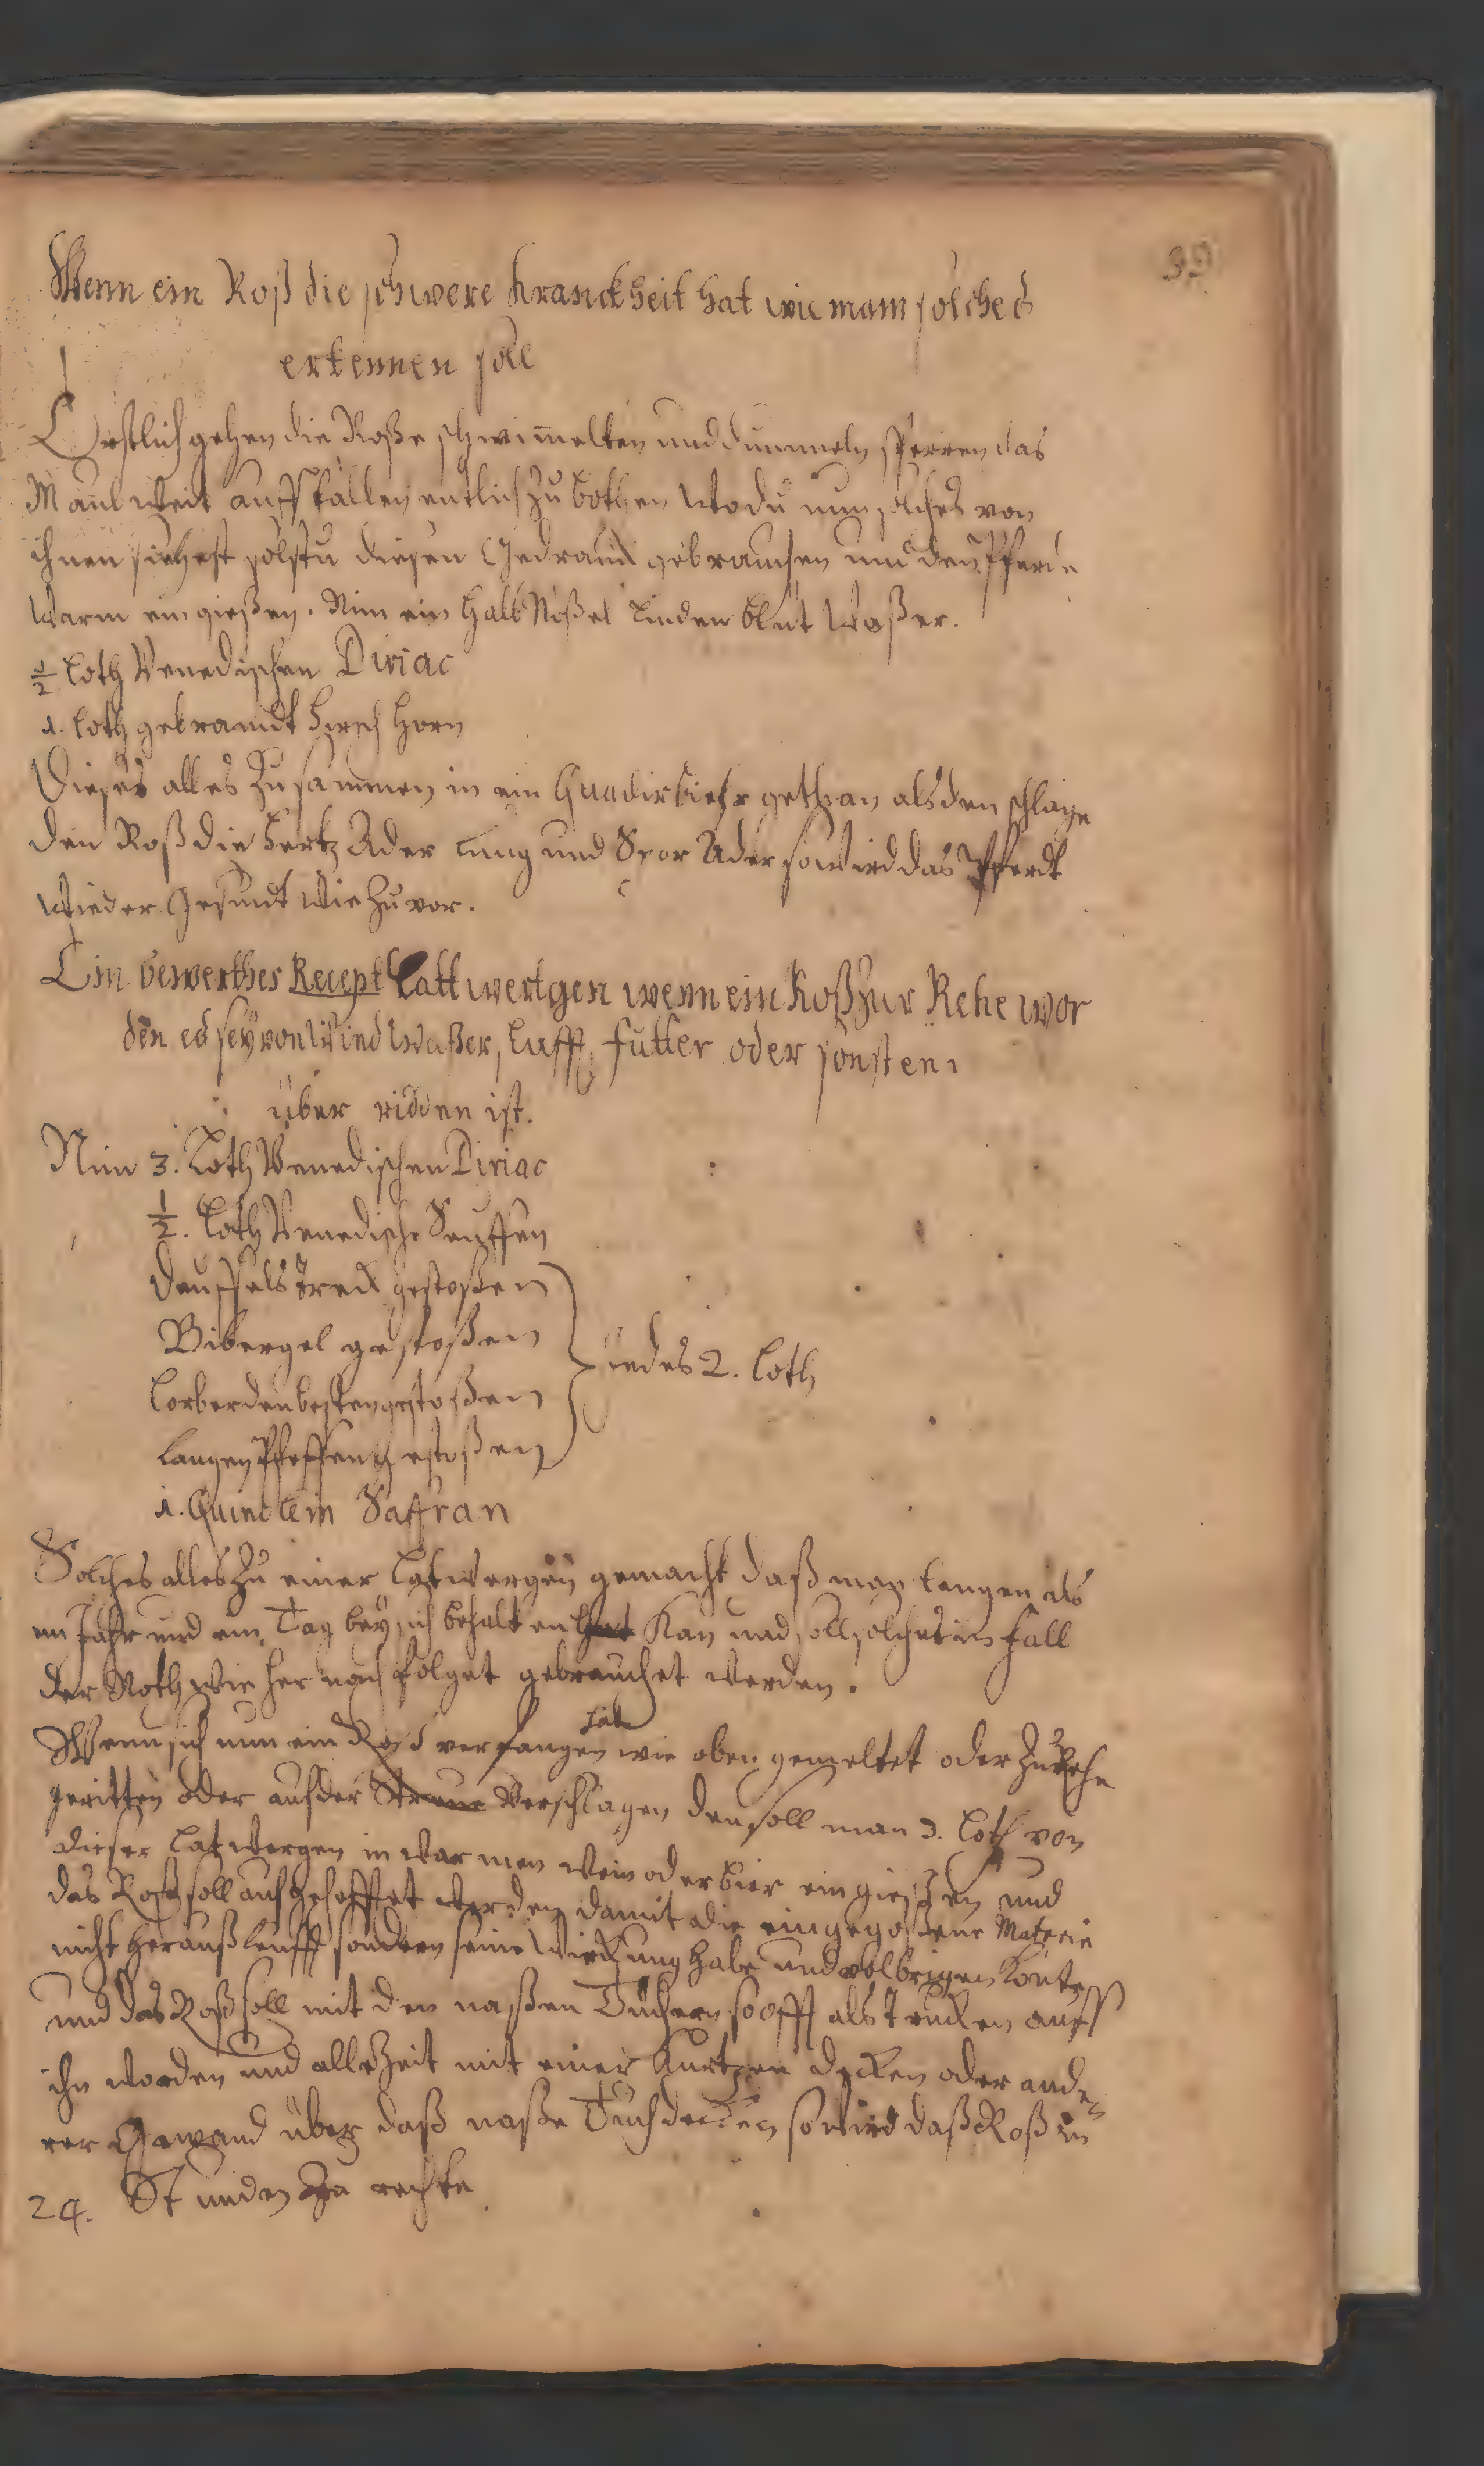 39
Wenn ein Roß die schwere kranckheit hat wie mann solches
erkennen soll
Erstlich gehen die Roße schwimmelten und dummeln sperren das
Maul weit auff fallen entlich zu bothen Wo du nun solches von
ihnen siehest solstu diesen Gedranck gebrauchen und den Pferde
Warm ein gießen. Nim ein halb Nößel Linden blut Waßer.
½ Loth Venedischen Diriac
1. Loth gebrandt Hirsch Horn
Dieses alles zusammen in ein bier gethan alsden schlage
den Roß die Hertz Ader Lung und Spor Ader so wird das Pferdt
wieder Gesundt wie zuvor.
Ein bewerthes Recept Lattwertgen wenn ein Roß zur Rehe wor
den es sey von Wind Waßer, Lufft, futter oder sonsten
über ridden ist.
Nim 3. Loth Venedischen Diriac
½. Loth Venedische Seuffen
Deuffels Dreck gestoßen
Bibergel gestoßen
Lorber den besten gestoßen
Langen Pfeffer gestoßen
iedes 2. Loth
1. Quintlein Saffran
Solches alles zu einer Latwergen gemacht daß man lengen als
ein Jahr und ein Tag bey sich behalten Kan und soll solches im fall
der Noth wie her nach folget gebrauchet werden.
hat
Wenn sich nun ein Roß verfangen wie oben gemeltet oder zu Rehe
geritten oder auf der Streue Verschlagen den soll man 3. Loth von
dieser Latwergen in warmen Wein oder bier ein gießen und
das Roß soll auf werden damit die eingegoßene Materie
nicht herauß lauff sondern seine Wirckung habe und volbringen
und das Roß soll mit den naßen Tüchern so offt als trucken auff
ihn worden und alle Zeit mit einer Kurtzen decken oder ande
rer Gewand über daß naße Tuch decken so wird daß Roß in
24. Stunden zu rechte